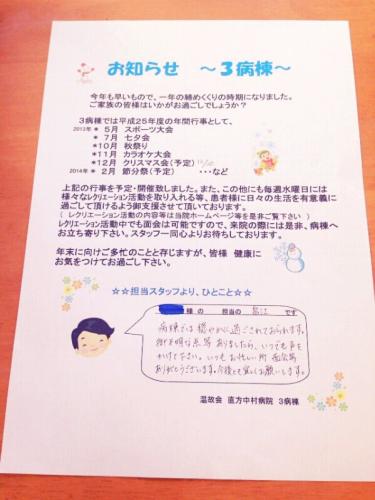 お知らせ ～3病棟～
今年も早いもので、一年の締めくくりの時期になりました。
ご家族の皆様はいかがお過ごしでしょうか？
3病棟では平成25年度の年間行事として、
2013年 * 5月 スポーツ大会
* 7月 七夕会
*10月 秋祭り
*11月 カラオケ大会
*12月 クリスマス会(予定)
2014年 * 2月 節分祭(予定) ・・・など
上記の行事を予定・開催致しました。また、この他にも毎週水曜日には
様々なレクリエーション活動を取り入れる等、患者様に日々の生活を有意義に
過ごして頂けるよう御支援させて頂いております。
( レクリエーション活動の内容等は当院ホームページ等を是非ご覧下さい )
レクリエーション活動中でも面会は可能ですので、来院の際には是非、病棟へ
お立ち寄り下さい。スタッフ一同心よりお待ちしております。
年末に向けご多忙のことと存じますが、皆様 健康に
お気をつけてお過ごし下さい。
☆☆担当スタッフより、ひとこと☆☆
様の 担当の です
病棟では穏やかに過ごされておられます。
御不明な点等ありましたら、いつでも声を
かけて下さい。いつもお忙しい所 面会等
ありがとうございます。今後とも宜しくお願いします。
温故会 直方中村病院 3病棟